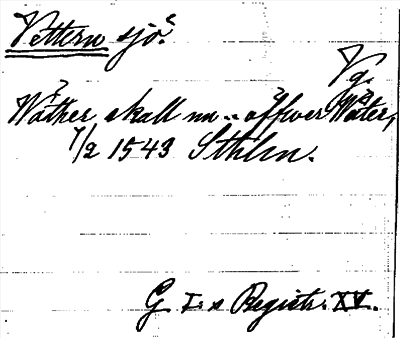 Vettern sjö.
Vg.
Wäther skall nu .. öffwer Wäter,
7/2 1543 Sthlm.
G. I:s Registr. XV.